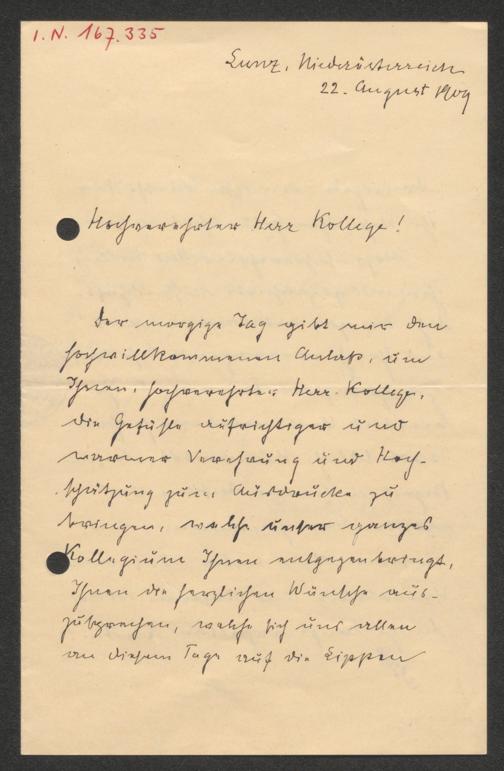 I.N. 167.335
Lunz, Niederösterreich
22. August 1909
Hochverehrter Herr Kollege!
Der morgige Tag gibt mir den
hochwillkommenen Anlaß, um
Ihnen, hochverehrter Herr Kollege,
die Gefühle aufrichtiger und
warmer Verehrung und Hoch-
schätzung zum Ausdrucke zu
bringen, welche unser ganzes
Kollegium Ihnen entgegenbringt,
Ihnen die herzlichen Wünsche aus-
zusprechen, welche sich uns allen
an diesem Tage auf die Lippen